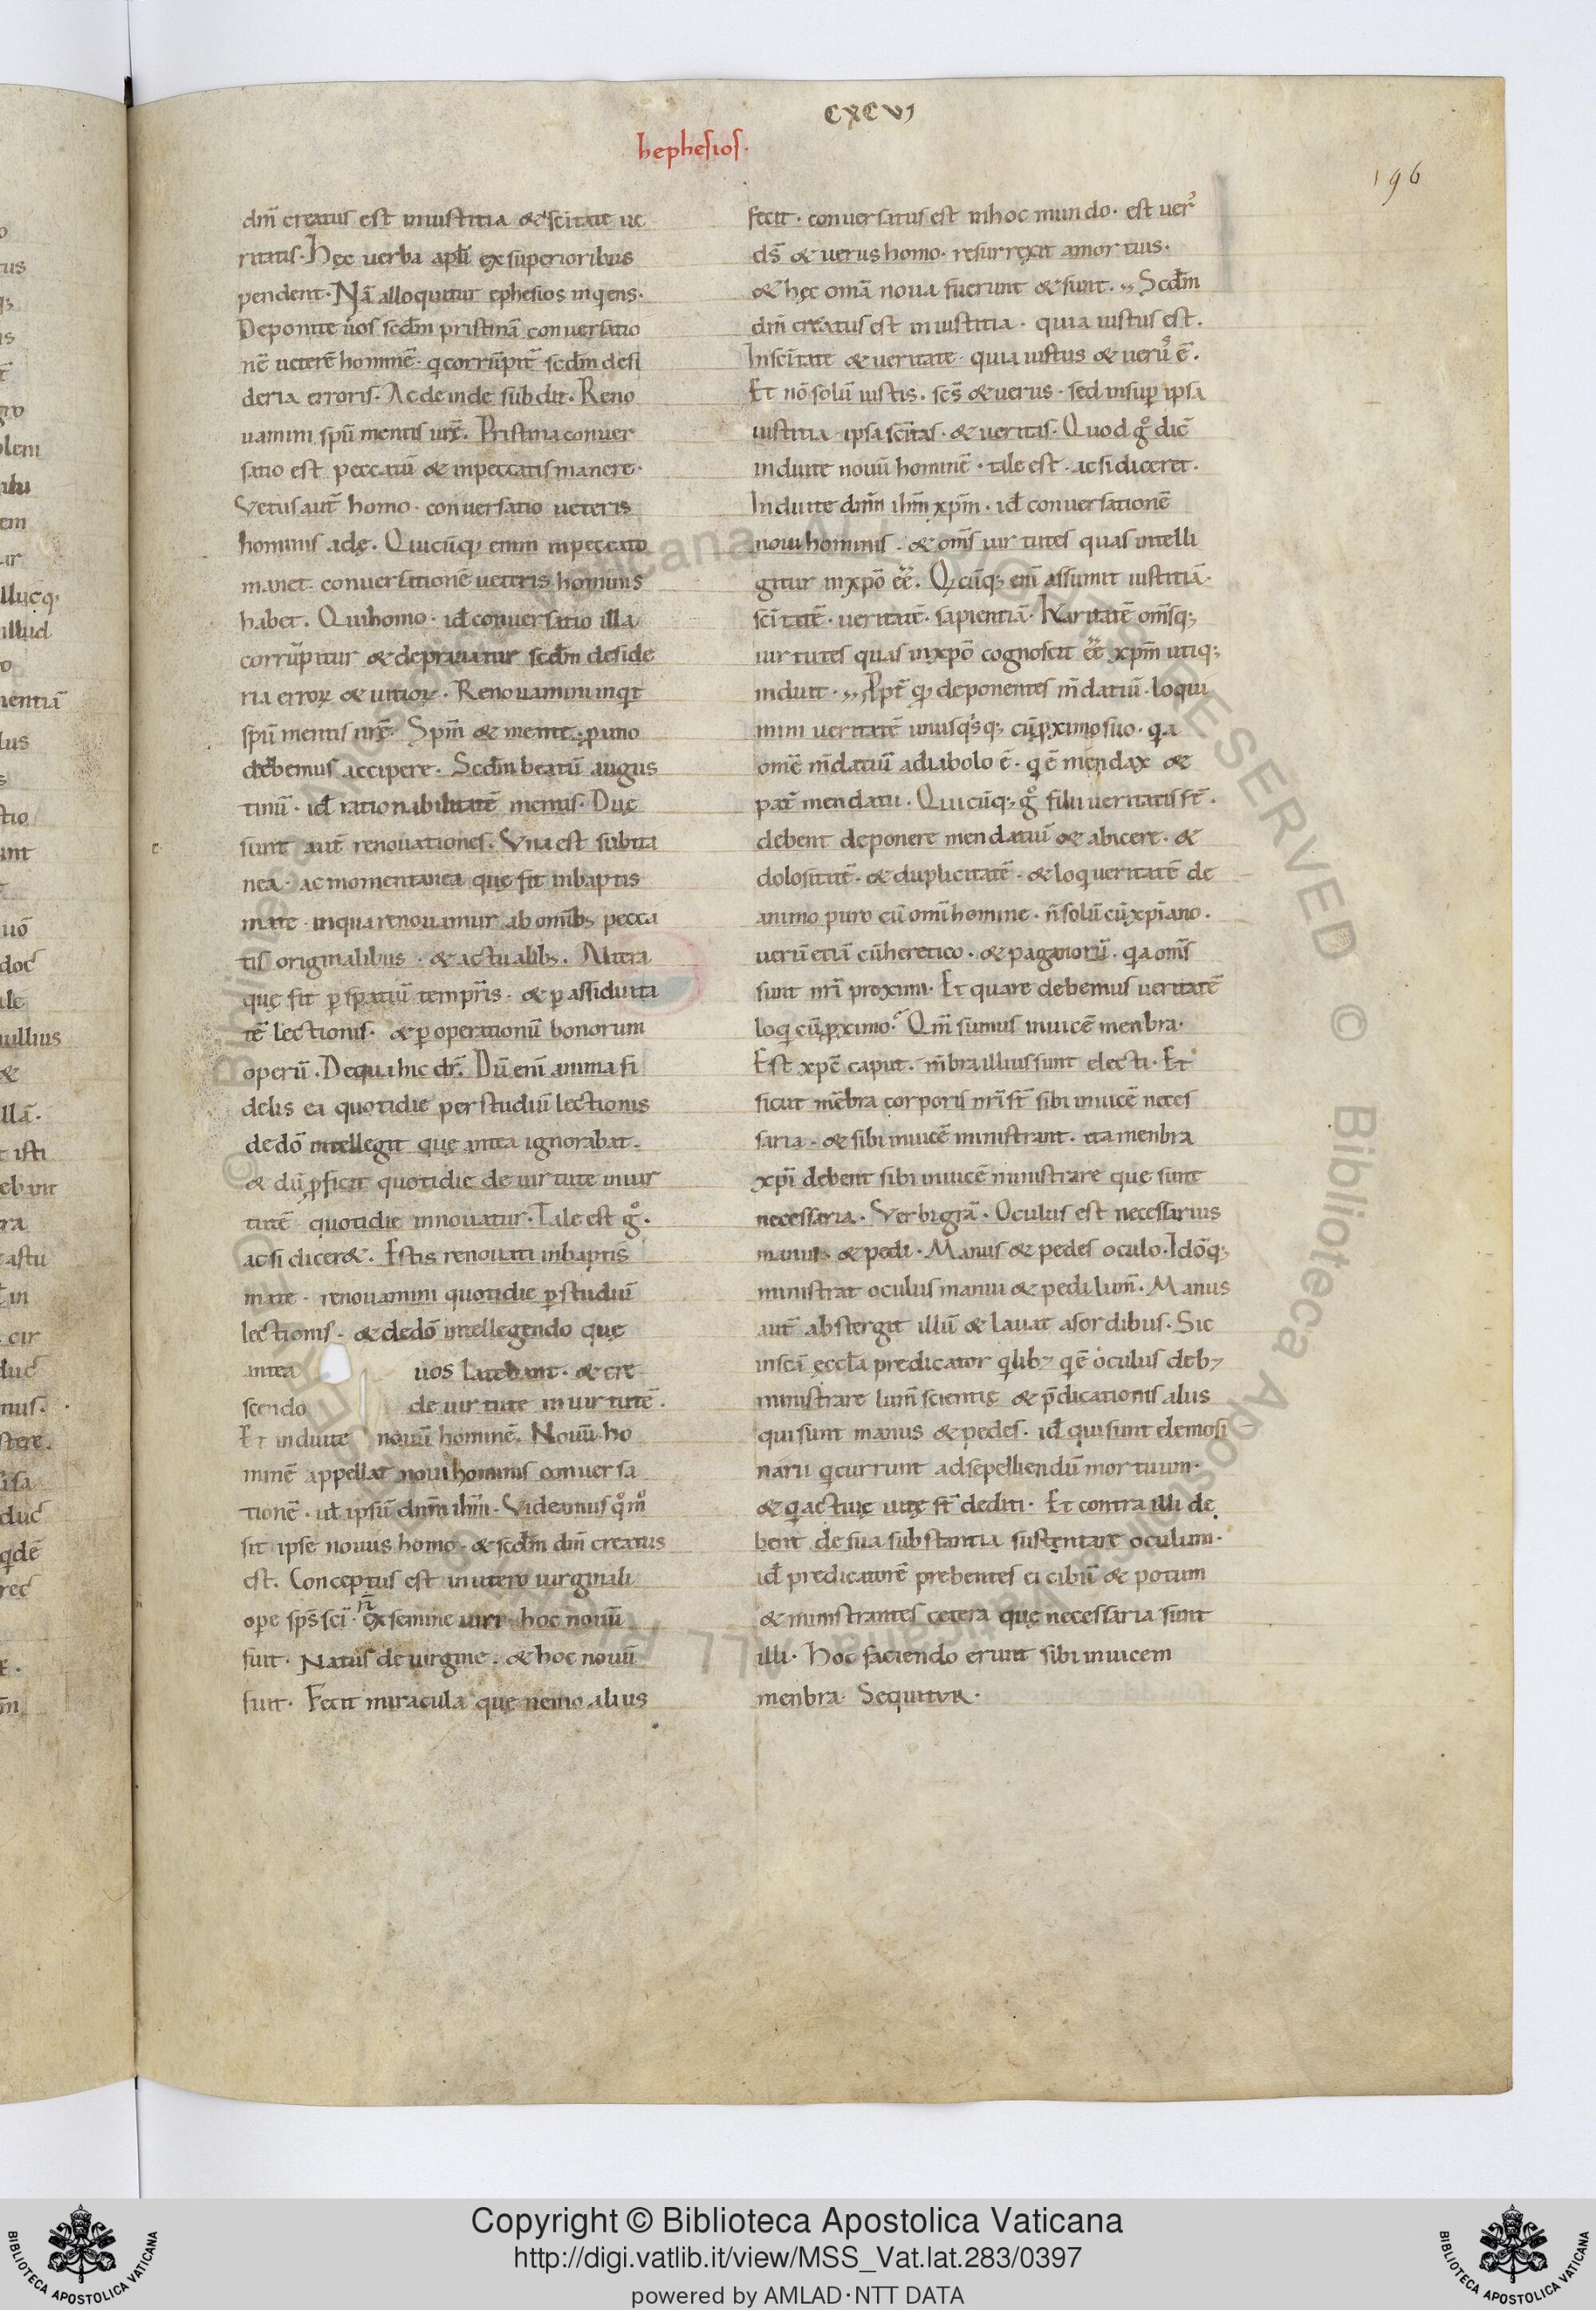 CXCVI
hephesios.
196
dm̄ creatus est iniustitia & sc̄itate ue
ritatis. Hęc uerba apl̄i exsuperioribus
pendent. Nā alloquitur ephesios inqens.
Deponite uos scdm̄ pristinā conuersatio
nē ueterē hominē. q corrūpit̄ scdm̄ desi
deria erroris. Acdeinde subdit. Reno
uamini spū mentis urę̄. Pristina conuer
satio est peccatū & inpeccatis manere.
Vetus aut̄ homo. conuersatio ueteris
hominis adę. Quicūq; enim inpeccato
manet conuersationē ueteris hominis
habet. Qui homo. id̄ conuersatio illa
corrūpitur & deprauatur scdm̄ deside
ria erroꝝ & uitioꝝ. Renouamini inqt
spū mentis urę̄. Spm̄ & mente. ꝓ uno
debemus accipere. Scdm̄ beatū augus
tinū. id̄ rationabilitatē mentis. Duę
sunt aut̄ renouationes. Vna est subita
nea. ac momentanea quę fit inbaptis
mate. inqua renouamur ab omib; pecca
tis originalibus. & actualib;. Altera
quę fit ꝑ spatiū tempr̄is. & ꝑ assiduita
tē lectionis. & ꝑ operationū bonorum
operū. Dequa hic dr̄. Dū eni anima fi
delis ea quotidie per studiū lectionis
dedō intellegit quę antea ignorabat.
& dū ꝓficit quotidie de uirtute inuir
tutē quotidie innouatur. Tale est gͦ.
acsi dicer&. Estis renouati inbaptis
mate. renouamini quotidie ꝑ studiū
lectionis. & dedō intellegendo quę
antea uos latebant. & cre
scendo de uirtute in uirtutē.
Et induite nouū hominē. Nouū ho
minē appellat noui hominis conuersa
tionē. ul̄ ipsū dnm̄ ihm̄. Videamus qͦmͦ
sit ipse nouus homo. & scdm̄ dm̄ creatus
est. Conceptus est inutero uirginali
ope sps̄ sci. n̄ ex semine uiri. hoc nouū
fuit. Natus de uirgine. & hoc nouū
fuit. Fecit miracula quę nemo alius
fecit. conuersatus est inhoc mundo. est uer᷒
ds̄ & uerus homo. resurrexit amortuis.
& hęc omā noua fuerunt & sunt. ,, Scdm̄
dm̄ creatus est iniustitia. quia iustus est.
Insc̄itate & ueritate. quia iustus & uerū᷒ ē.
Et nō solū iustis. sc̄s & uerus. sed insuꝑ ipsa
iustitia ipsa sc̄itas. & ueritas. Quod gͦ dic̄
induite nouū hominē. tale est. ac si diceret.
Induite dnm̄ ihm̄ xpm̄. id̄ conuersationē
noui hominis. & om̄s uirtutes quas intelli
gitur inxpō eē̄. Qcūq; eni assumit iustitiā.
sc̄itatē. ueritatē. sapientiā. karitatē om̄sq;
uirtutes quas inxpō cognoscit eē̄ xpm̄ utiq;
induit. ,, Ppt̄ qd̄ deponentes m̄datiū. loqui
mini ueritatē unusqsq; cū ꝓximo suo. qa
omē m̄datiū adiabolo ē. q ē mendax &
pat̄ mendatii. Quicūq; gͦ filii ueritatis st̄.
debent deponere mendatiū & abicere. &
dolositatē. & duplicitatē. & loq ueritatē de
animo puro cū omi homine. n̄ solū cū xpiano.
uerū etiā cū heretico. & paganorū. qa om̄s
sunt nri proximi. Et quare debemus ueritatē
loq cū ꝓximo. Qm̄ sumus inuicē menbra.
Est xpc̄ caput. m̄bra illius sunt electi. Et
sicut mēbra corporis nri st̄ sibi inuicē neces
saria. & sibi inuicē ministrant. ita menbra
xpi debent sibi inuicē ministrare quę sunt
necessaria. Verbi grā. Oculus est necessarius
manui & pedi. Manus & pedes oculo. Idōq;
ministrat oculus manui & pedi lum̄. Manus
aut̄ abstergit illū & lauat asordibus. Sic
insc̄ā ęccl̄a predicator qlib; q ē oculus deb;
ministrare lum̄ scientię & p̄dicationis aliis
qui sunt manus & pedes. id̄ qui sunt elemosi
narii q currunt adsepelliendū mortuum.
& q actiuę uitę st̄ dediti. Et contra illi de
bent de sua substantia sustentare oculum.
id̄ predicatorē prebentes ei cibū & potum
& ministrantes cetera quę necessaria sunt
illi. Hoc faciendo erunt sibi inuicem
menbra. Sequitur.
Copyright © Biblioteca Apostolica Vaticana
http://digi.vatlib.it/view/MSS_Vat.lat.283/0397
powered by AMLAD·NTT DATA